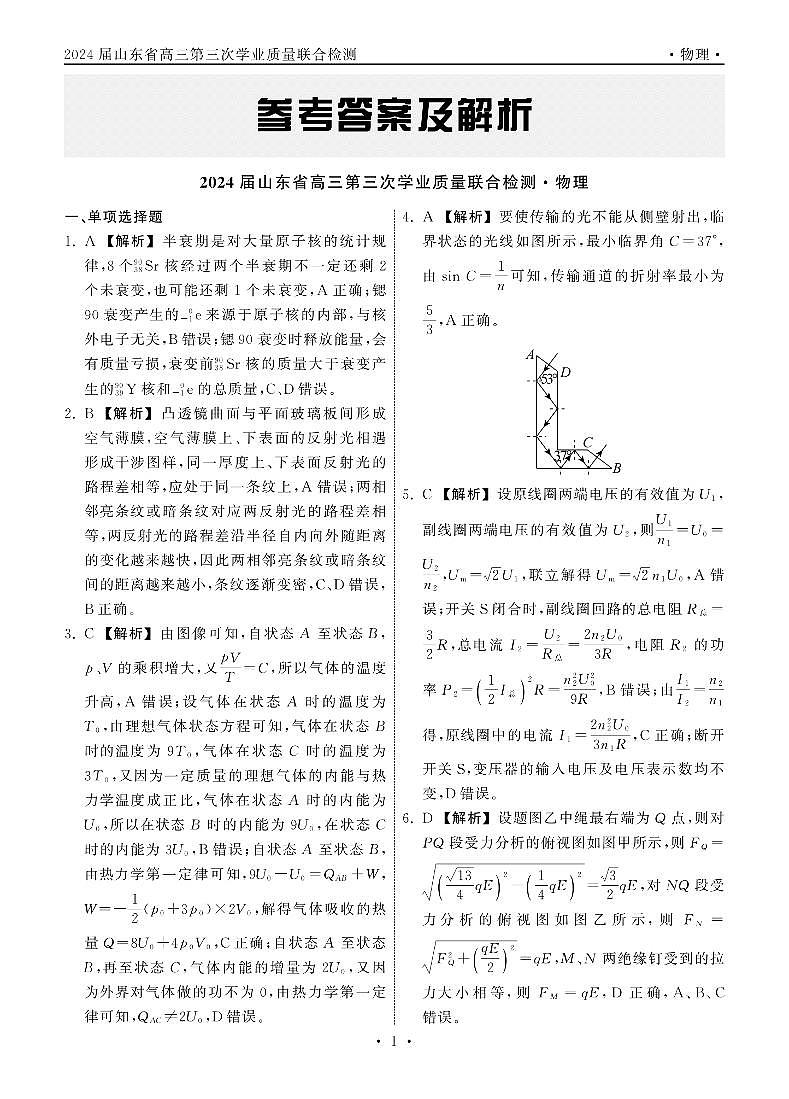 2024 届山东省高三第三次学业质量联合检测 ·物理·
参考答案及解析
2024 届山东省高三第三次学业质量联合检测·物理
一、单项选择题
1. A 【解析】半衰期是对大量原子核的统计规
律,8 个⁹⁰₃₈Sr 核经过两个半衰期不一定还剩 2
个未衰变,也可能还剩 1 个未衰变,A 正确;锶
90 衰变产生的⁰₋₁e 来源于原子核的内部,与核
外电子无关,B 错误;锶 90 衰变时释放能量,会
有质量亏损,衰变前⁹⁰₃₈Sr 核的质量大于衰变产
生的⁹⁰₃₉Y 核和⁰₋₁e 的总质量,C、D 错误。
2. B 【解析】凸透镜曲面与平面玻璃板间形成
空气薄膜,空气薄膜上、下表面的反射光相遇
形成干涉图样,同一厚度上、下表面反射光的
路程差相等,应处于同一条纹上,A 错误;两相
邻亮条纹或暗条纹对应两反射光的路程差相
等,两反射光的路程差沿半径自内向外随距离
的变化越来越快,因此两相邻亮条纹或暗条纹
间的距离越来越小,条纹逐渐变密,C、D 错误,
B 正确。
3. C 【解析】由图像可知,自状态 A 至状态 B,
p、V 的乘积增大,又pV/T=C,所以气体的温度
升高,A 错误;设气体在状态 A 时的温度为
T₀,由理想气体状态方程可知,气体在状态 B
时的温度为 9T₀,气体在状态 C 时的温度为
3T₀,又因为一定质量的理想气体的内能与热
力学温度成正比,气体在状态 A 时的内能为
U₀,所以在状态 B 时的内能为 9U₀,在状态 C
时的内能为 3U₀,B 错误;自状态 A 至状态 B,
由热力学第一定律可知,9U₀-U₀=Q_AB+W,
W=-1/2(p₀+3p₀)×2V₀,解得气体吸收的热
量 Q=8U₀+4p₀V₀,C 正确;自状态 A 至状态
B,再至状态 C,气体内能的增量为 2U₀,又因
为外界对气体做的功不为 0,由热力学第一定
律可知,Q_AC≠2U₀,D 错误。
4. A 【解析】要使传输的光不能从侧壁射出,临
界状态的光线如图所示,最小临界角 C=37°,
由 sin C=1/n可知,传输通道的折射率最小为
5/3,A 正确。
A
D
53°
C
37°
B
5. C 【解析】设原线圈两端电压的有效值为 U₁,
副线圈两端电压的有效值为 U₂,则U₁/n₁=U₀=
U₂/n₂,Uₘ=√2U₁,联立解得 Uₘ=√2n₁U₀,A 错
误;开关 S 闭合时,副线圈回路的总电阻 R总=
3/2R,总电流 I₂=U₂/R总=2n₂U₀/3R,电阻 R₂ 的功
率 P₂=(1/2I总)²R=n₂²U₀²/9R,B 错误;由I₁/I₂=n₂/n₁
得,原线圈中的电流 I₁=2n₂²U₀/3n₁R,C 正确;断开
开关 S,变压器的输入电压及电压表示数均不
变,D 错误。
6. D 【解析】设题图乙中绳最右端为 Q 点,则对
PQ 段受力分析的俯视图如图甲所示,则 F_Q=
√((√13/4qE)²-(1/4qE)²)=√3/2qE,对 NQ 段受
力分析的俯视图如图乙所示,则 F_N=
√(F_Q²+(qE/2)²)=qE,M、N 两绝缘钉受到的拉
力大小相等,则 F_M=qE,D 正确,A、B、C
错误。
· 1 ·